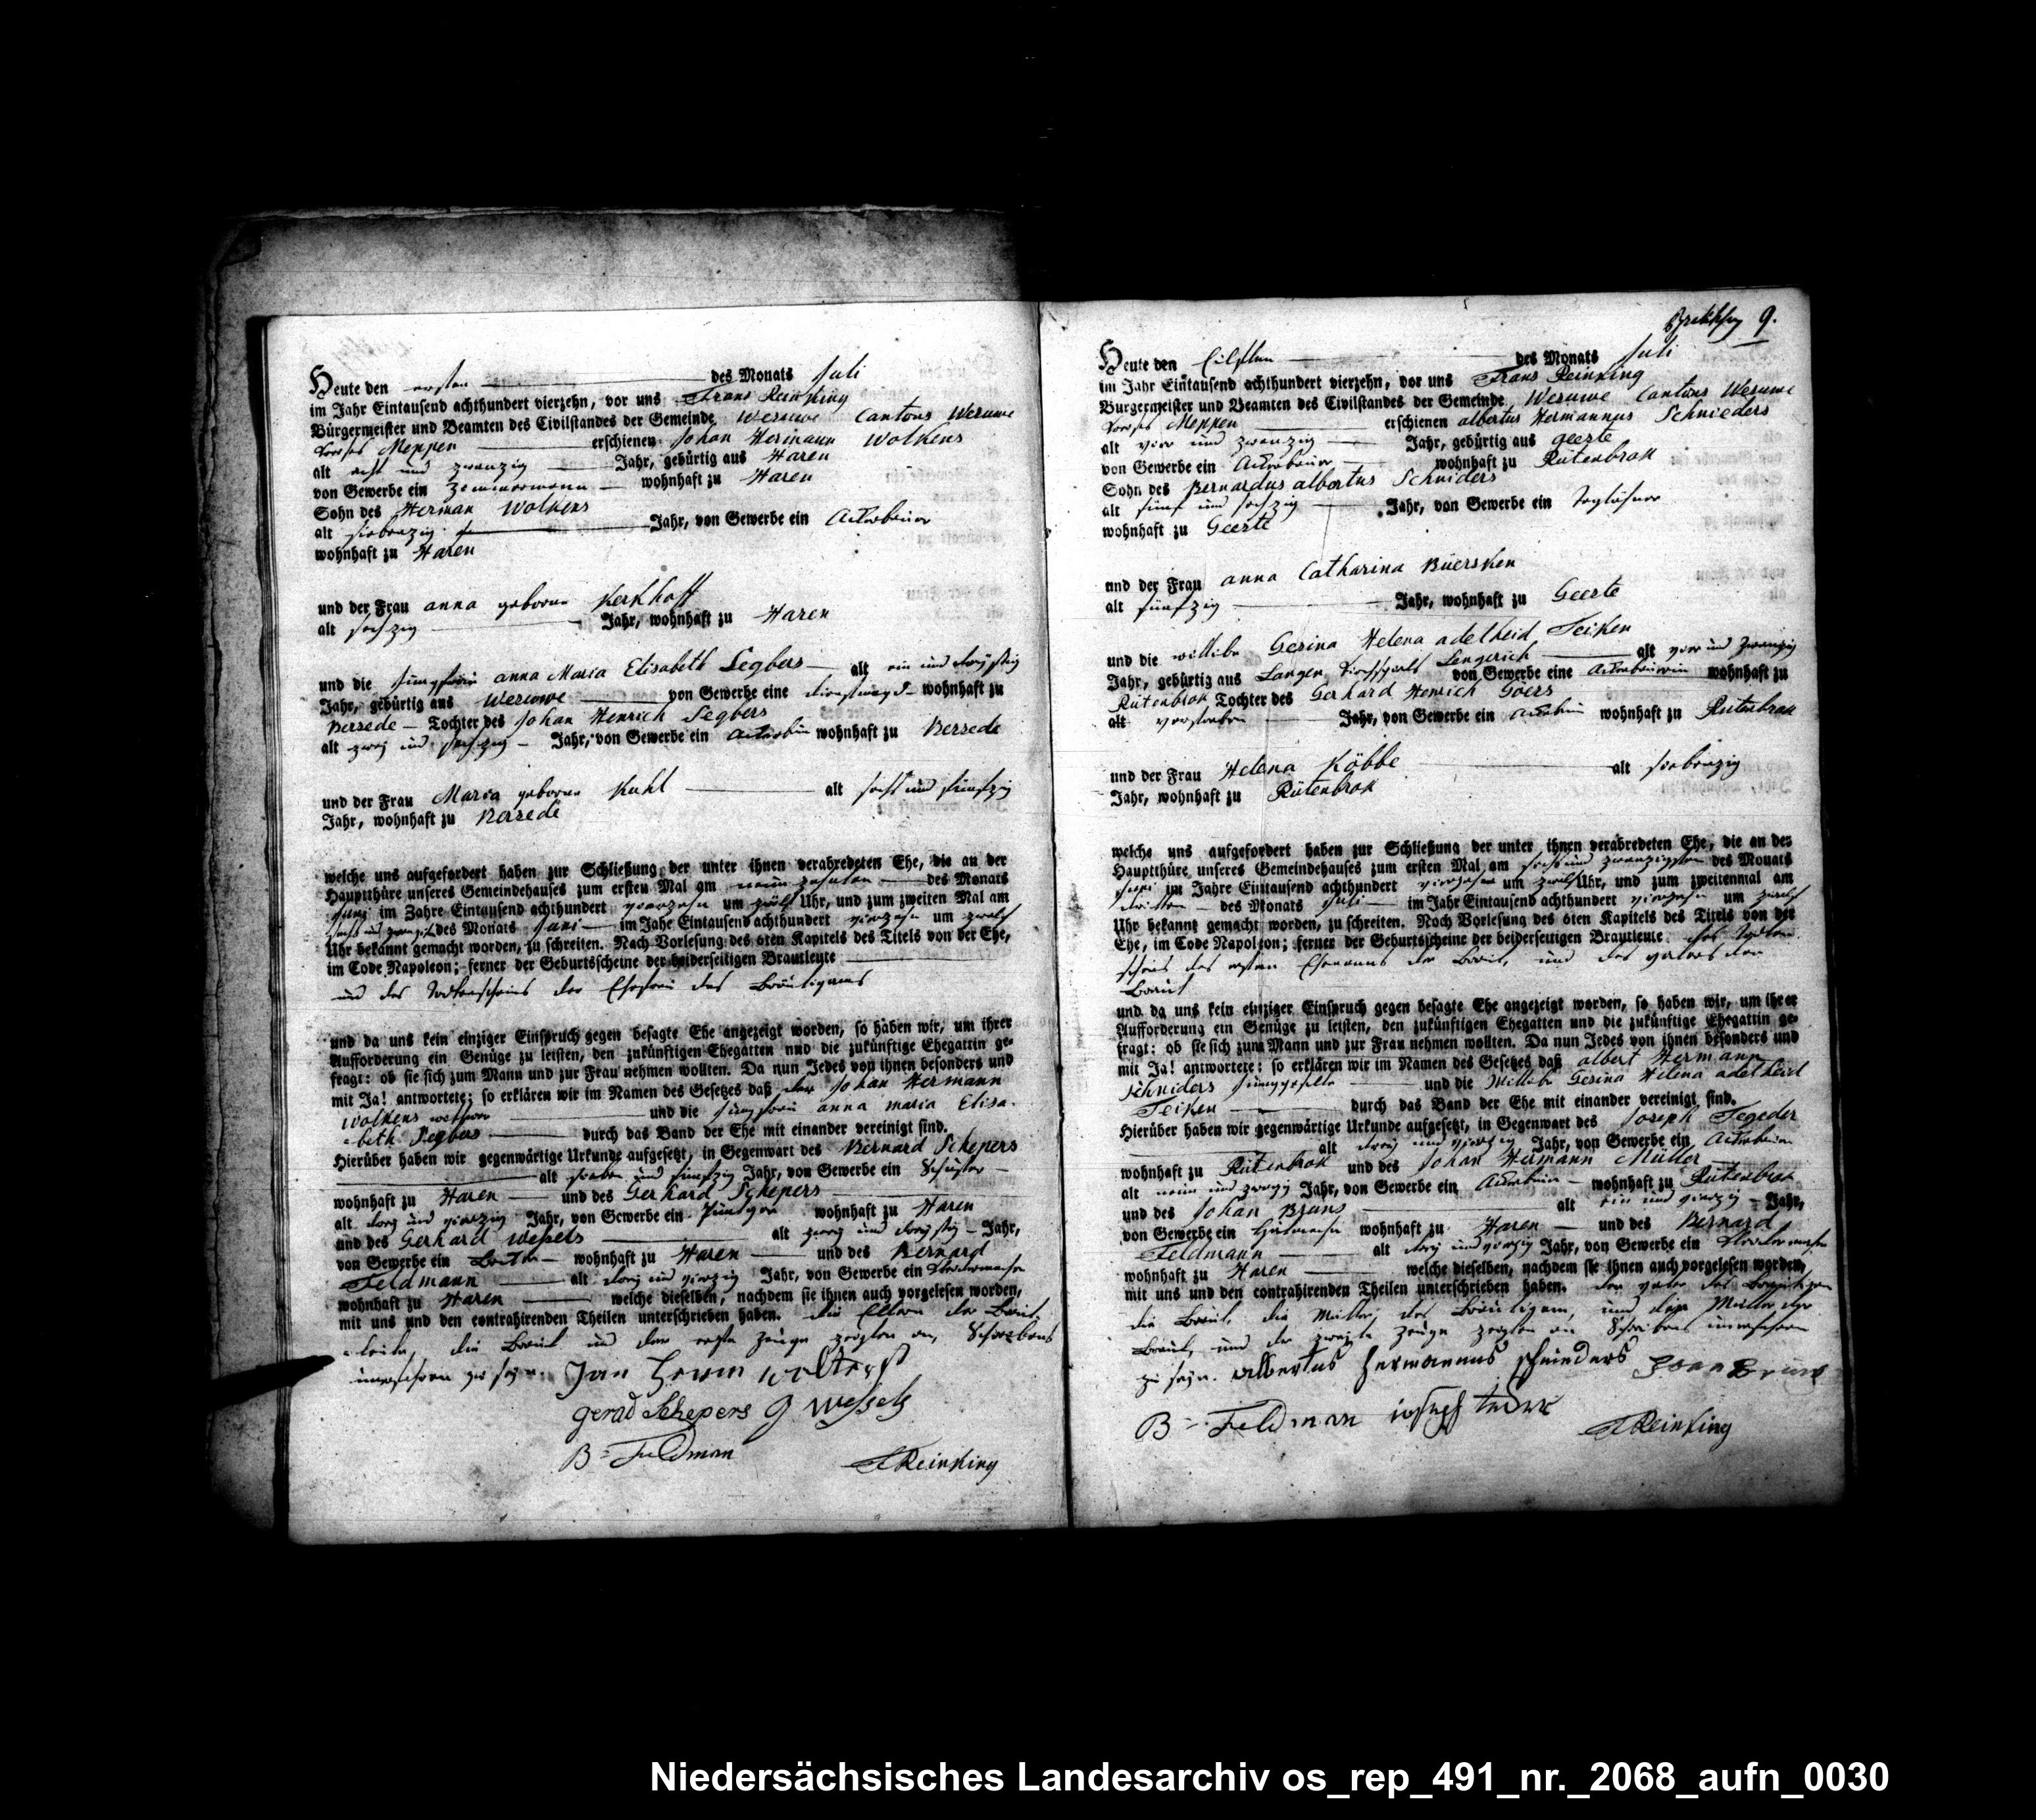 Heute den ersten des Monats Juli
im Jahr Eintausend achthundert vierzehn, vor uns Frans Reinking
Bürgermeister und Beamten des Civilstandes der Gemeinde Wesuwe Cantons Wesuwe
Meppen erschienen Johan Hermann Wolkens
alt acht und zwanzig Jahr, gebürtig aus Haren
von Gewerbe ein Zimmermann wohnhaft zu Haren
Sohn des Herman Wolkens
alt siebenzig Jahr, von Gewerbe ein Ackerbauer
wohnhaft zu Haren
und der Frau anna geborne Kerkhoff
alt sechzig Jahr, wohnhaft zu Haren
und die Jungfrau anna Maria Elisabeth Segbers alt ein und dreyßig
Jahr, gebürtig aus Wesuwe von Gewerbe eine Dienstmagd wohnhaft zu
Versede Tochter des Johan Henrich Segbers
alt zwey und sechzig Jahr, von Gewerbe ein wohnhaft zu Versede
und der Frau Maria geborne Kuhl alt sechs und funfzig
Jahr, wohnhaft zu Versede
welche uns aufgefordert haben zur Schließung der unter ihnen verabredeten Ehe, die an der
Hauptthüre unseres Gemeindehauses zum ersten Mal am neun zehnten des Monats
Juni im Zahre Eintausend achthundert vierzehn um zwölf Uhr, und zum zweiten Mal am
sechs und zwanzigsten des Monats Juni im Jahe Eintausend achthundert vierzehn um zwölf
Uhr bekannt gemacht worden, zu schreiten. Nach Vorlesung des 6ten Kapitels des Titels von der Ehe,
im Code Napoleon; ferner der Geburtsscheine der beiderseitigen Brautleute
und des Todtenscheins der Ehefrau des Bräutigams
und da uns kein einziger Einspruch gegen besagte Ehe angezeigt worden, so haben wir, um ihrer
Aufforderung ein Genüge zu leisten, den zukünftigen Ehegatten nnd die zukünftige Ehegattin ge-
fragt: ob sie sich zum Mann und zur Frau nehmen wollten. Da nun Jedes von ihnen besonders und
mit Ja! antwortete; so erklären wir im Namen des Gesetzes daß der Johan Hermann
Wolkens wittwer und die Jungfrau anna maria Elisa-
-beth Segbers durch das Band der Ehe mit einander vereinigt sind.
Hierüber haben wir gegenwärtige Urkunde aufgesetzt, in Gegenwart des Bernard Schepers
alt sieben und funfzig Jahr, von Gewerbe ein Schuster
wohnhaft zu Haren und des Gerhard Schepers
alt drey und vierzig Jahr, von Gewerbe ein wohnhaft zu Haren
und des Gerhard Wessels alt zwey und dreyßig Jahr,
von Gewerbe ein wohnhaft zu Haren und des Bernard
Feldmann alt drey und vierzig Jahr, von Gewerbe ein
wohnhaft zu Haren welche dieselben, nachdem sie ihnen auch vorgelesen worden,
mit uns und den contrahirenden Theilen unterschrieben haben. die Eltern der Braut-
-leute, die Braut und der erste Zeuge zeigten an, Schreibens
unerfahren zu seyn. Jan Herm wolters
gerad Schepers G Wessels
B = Feldman F Reinking
9.
Heute den Eilften des Monats Juli
im Jahr Eintausend achthundert vierzehn, vor uns Frans Reinking
Bürgermeister und Beamten des Civilstandes der Gemeinde Wesuwe Cantons Wesuwe
Meppen erschienen albertus Hermannus Schnieders
alt vier und zwanzig Jahr, gebürtig aus geerte
von Gewerbe ein Ackerbauer wohnhaft zu Rütenbrok
Sohn des Bernardus albertus Schniders
alt fünf und sechzig Jahr, von Gewerbe ein Taglöhner
wohnhaft zu Geerte
und der Frau anna Catharina Büersken
alt fünfzig Jahr, wohnhaft zu Geerte
und die wittibe Gesina Helena adelheid Teiken
alt vier und zwanzig
Jahr, gebürtig aus Langen Kirchspiels Lengerich von Gewerbe eine Ackerbäurin wohnhaft zu
Rütenbrok Tochter des Gerhard Henrich Goers
alt verstorben Jahr, von Gewerbe ein wohnhaft zu Rütenbrok
und der Frau Helena Köbbe alt siebenzig
Jahr, wohnhaft zu Rütenbrok
welche uns aufgefordert haben zur Schließung der unter ihnen verabredeten Ehe, die an der
Hauptthüre unseres Gemeindehauses zum ersten Mal am sechs und zwanzigsten des Monats
Juni im Jahre Eintausend achthundert vierzehn um zwölf Uhr, und zum zweitenmal am
dritten des Monats Juli im Jahr Eintausend achthundert vierzehn um zwölf
Uhr bekannt gemacht worden, zu schreiten. Noch Vorlesung des 6ten Kapitels des Titels von der
Ehe, im Code Napoleon; ferner der Geburtsscheine der beiderseitigen Brautleute. des Todten-
scheins des ersten Ehemanns der Braut, und des Vaters der
Braut
und da uns kein einziger Einspruch gegen besagte Ehe angezeigt worden, so haben wir, um ihrer
Aufforderung ein Genüge zu leisten, den zukünftigen Ehegatten und die zukünftige Ehegattin ge-
fragt: ob sie sich zum Mann und zur Frau nehmen wollten. Da nun Jedes von ihnen besonders und
mit Ja! antwortete: so erklären wir im Namen des Gesetzes daß albert Hermann
Schniders Junggeselle und die Wittibe Gesina Helena adelheid
Teiken durch das Band der Ehe mit einander vereinigt sind.
Hierüber haben wir gegenwärtige Urkunde aufgesetzt, in Gegenwart des Joseph Tegeder
alt drey und vierzig Jahr, von Gewerbe ein Ackerbauer
wohnhaft zu Rütenbrok und des Johan Hermann Müller
alt neun und zwanzig Jahr, von Gewerbe ein wohnhaft zu Rütenbrok
und des Johan Bruns alt ein und vierzig Jahr,
von Gewerbe ein wohnhaft zu Haren und des Bernard
Feldmann alt drey und vierzig Jahr, von Gewerbe ein
wohnhaft zu Haren welche dieselben, nachdem sie ihnen auch vorgelesen worden,
mit uns und den contrahirenden Theilen unterschrieben haben. der Vater des Bräutigams
die Braut, die Mutter des Bräutigam, und die Mutter der
Braut, und der zweite Zeuge zeigten an Schreibens unerfahren
zu seyn. albertus hermannus schnieders Joan Bruns
B = Feldman F Reinking
Niedersächsisches Landesarchiv os_rep_491_nr._2068_aufn_0030